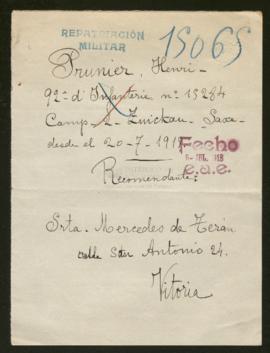 REPATRIACION
MILITAR
15065
Prunier, Henri-
92º d'Infanterie nº 15284
Camp-2-Zwickau-Saxe
desde el 20-7-191
Fecho
1918
e.a.e.
Recomendante:
Srta. Mercedes de Terán
calle San Antonio 24.
Vitoria